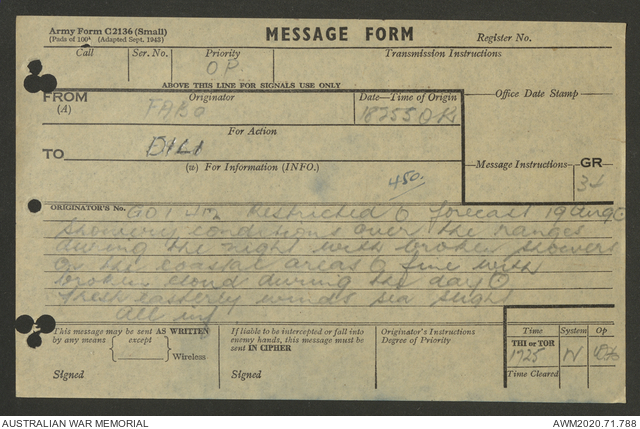 Army Form C2136 (Small)
(Pads of 100) (Adapted Sept. 1943)
MESSAGE FORM
Register No.
Call
Ser. No.
Priority
OP.
Transmission Instructions
ABOVE THIS LINE FOR SIGNALS USE ONLY
FROM
(A)
Originator
Date—Time of Origin
Office Date Stamp
TO
For Action
(w) For Information (INFO.)
450.
Message Instructions
GR
34
ORIGINATOR'S No. Restricted O forecast 19 Aug O
Showery conditions over the ranges
during the night with broken showers
on the coastal areas O fine with
broken cloud during the day O
Fresh easterly winds sea slight
all inf
This message may be sent AS WRITTEN
by any means
except
Wireless
Signed
If liable to be intercepted or fall into
enemy hands, this message must be
sent IN CIPHER
Signed
Originator's Instructions
Degree of Priority
Time
System
Op
THI or TOR
1925
W
Time Cleared
AUSTRALIAN WAR MEMORIAL
AWM2020.71.788